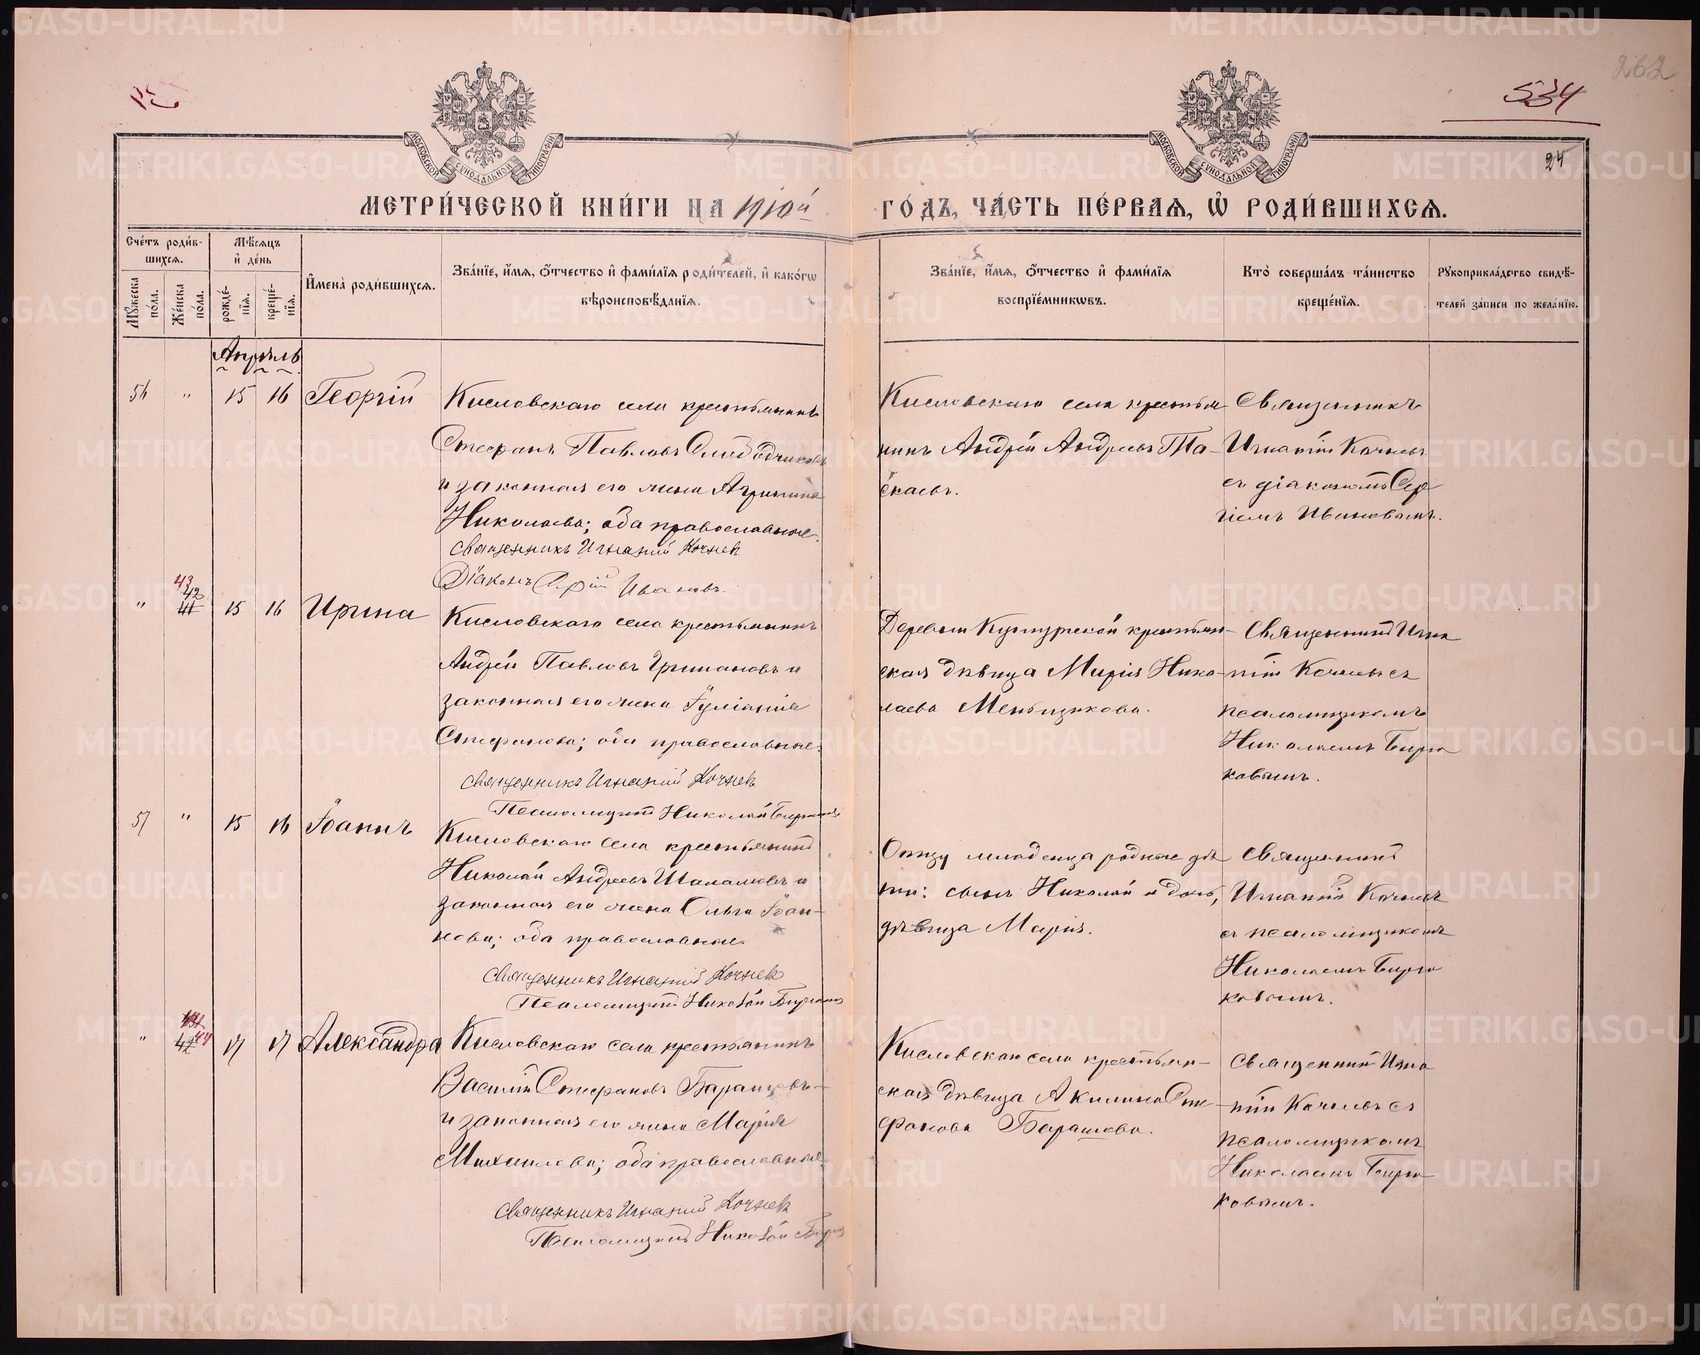 262
534
24
МОСКОВСКОЙ СѴНОДАЛЬНОЙ ТИПОГРАФІИ
МОСКОВСКОЙ СѴНОДАЛЬНОЙ ТИПОГРАФІИ
МЕТРИ́ЧЕСКОЙ КНИ́ГИ НА 1910й ГО́ДЪ, ЧА́СТЬ ПЕ́РВАЯ, Ѡ҆ РОДИ́ВШИХСЯ.
Сче́тъ роди́вшихся.
Мѹжеска по́ла.
Же́нска по́ла.
Мѣ́сяцъ и҆ де́нь
рожде́нїя.
креще́нїя.
И҆мена̀ роди́вшихся.
Зва́нїе, и҆́мя, ѻ҆́тчество и҆ фами́лїя роди́телей, и҆ како́гѡ
вѣроисповѣ́данїя.
Зва́нїе, и҆́мя, ѻ҆́тчество и҆ фами́лїя
воспрїе́мникѡвъ.
Кто̀ соверша́лъ та́инство
креще́нїя.
Рѹкоприкла́дство свидѣ́-
телей за́писи по жела́нїю.
Апрѣль
56 " 15 16 Георгій
Кисловскаго села крестьянинъ
Стефанъ Павловъ
и законная его жена Агрипина
Николаева; оба православные.
Священникъ Игнатій Кочнев
Діаконъ Сергій Иванов.
Кисловскаго села крестья-
нинъ Андрей Андреевъ Та-
скаевъ.
Священникъ
Игнатій Кочневъ
съ діакономъ Сер
гіемъ Ивановымъ.
" 43 42 41 15 16 Ирина
Кисловскаго села крестьянинъ
Андрей Павловъ и
законная его жена Іуліанія
Стефанова; оба православные.
Священникъ Игнатій Кочнев
Псаломщикъ Николай Бирюков
Деревни крестьян-
ская дѣвица Марія Нико-
лаева Меньщикова.
Священникъ Игна
тій Кочневъ съ
псаломщикомъ
Николаемъ Бирю
ковымъ.
57 " 15 16 Іоаннъ
Кисловскаго села крестьянинъ
Николай Андреевъ и
законная его жена Ольга Іоан-
нова; оба православные.
Священникъ Игнатій Кочнев
Псаломщикъ Николай Бирюков
Отцу младенца родные дѣ
ти: сынъ Николай и дочь,
дѣвица Марія.
Священникъ
Игнатій Кочневъ
съ псаломщикомъ
Николаемъ Бирю
ковымъ.
" 42 44 17 17 Александра
Кисловскаго села крестьянинъ
Василій Стефановъ
и законная его жена Марія
Михаилова; оба православные.
Священникъ Игнатій Кочнев
Псаломщикъ Николай Бирюков
Кисловскаго села крестьян-
ская дѣвица Акилина Сте
фанова Барашева.
Священникъ Игна
тій Кочневъ съ
псаломщикомъ
Николаемъ Бирю
ковымъ.
METRIKI.GASO-URAL.RU